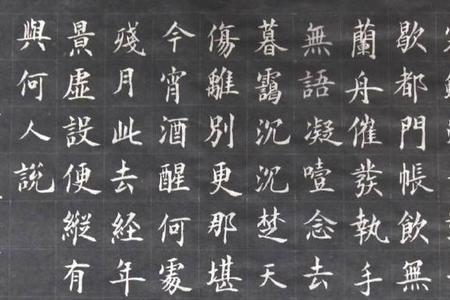 歇都門帳飲無
蘭舟催發執手
無語凝噎念去
暮靄沉沉楚天
傷離別更那堪
今宵酒醒何處
殘月此去経年
景虛設便縱有
與何人說